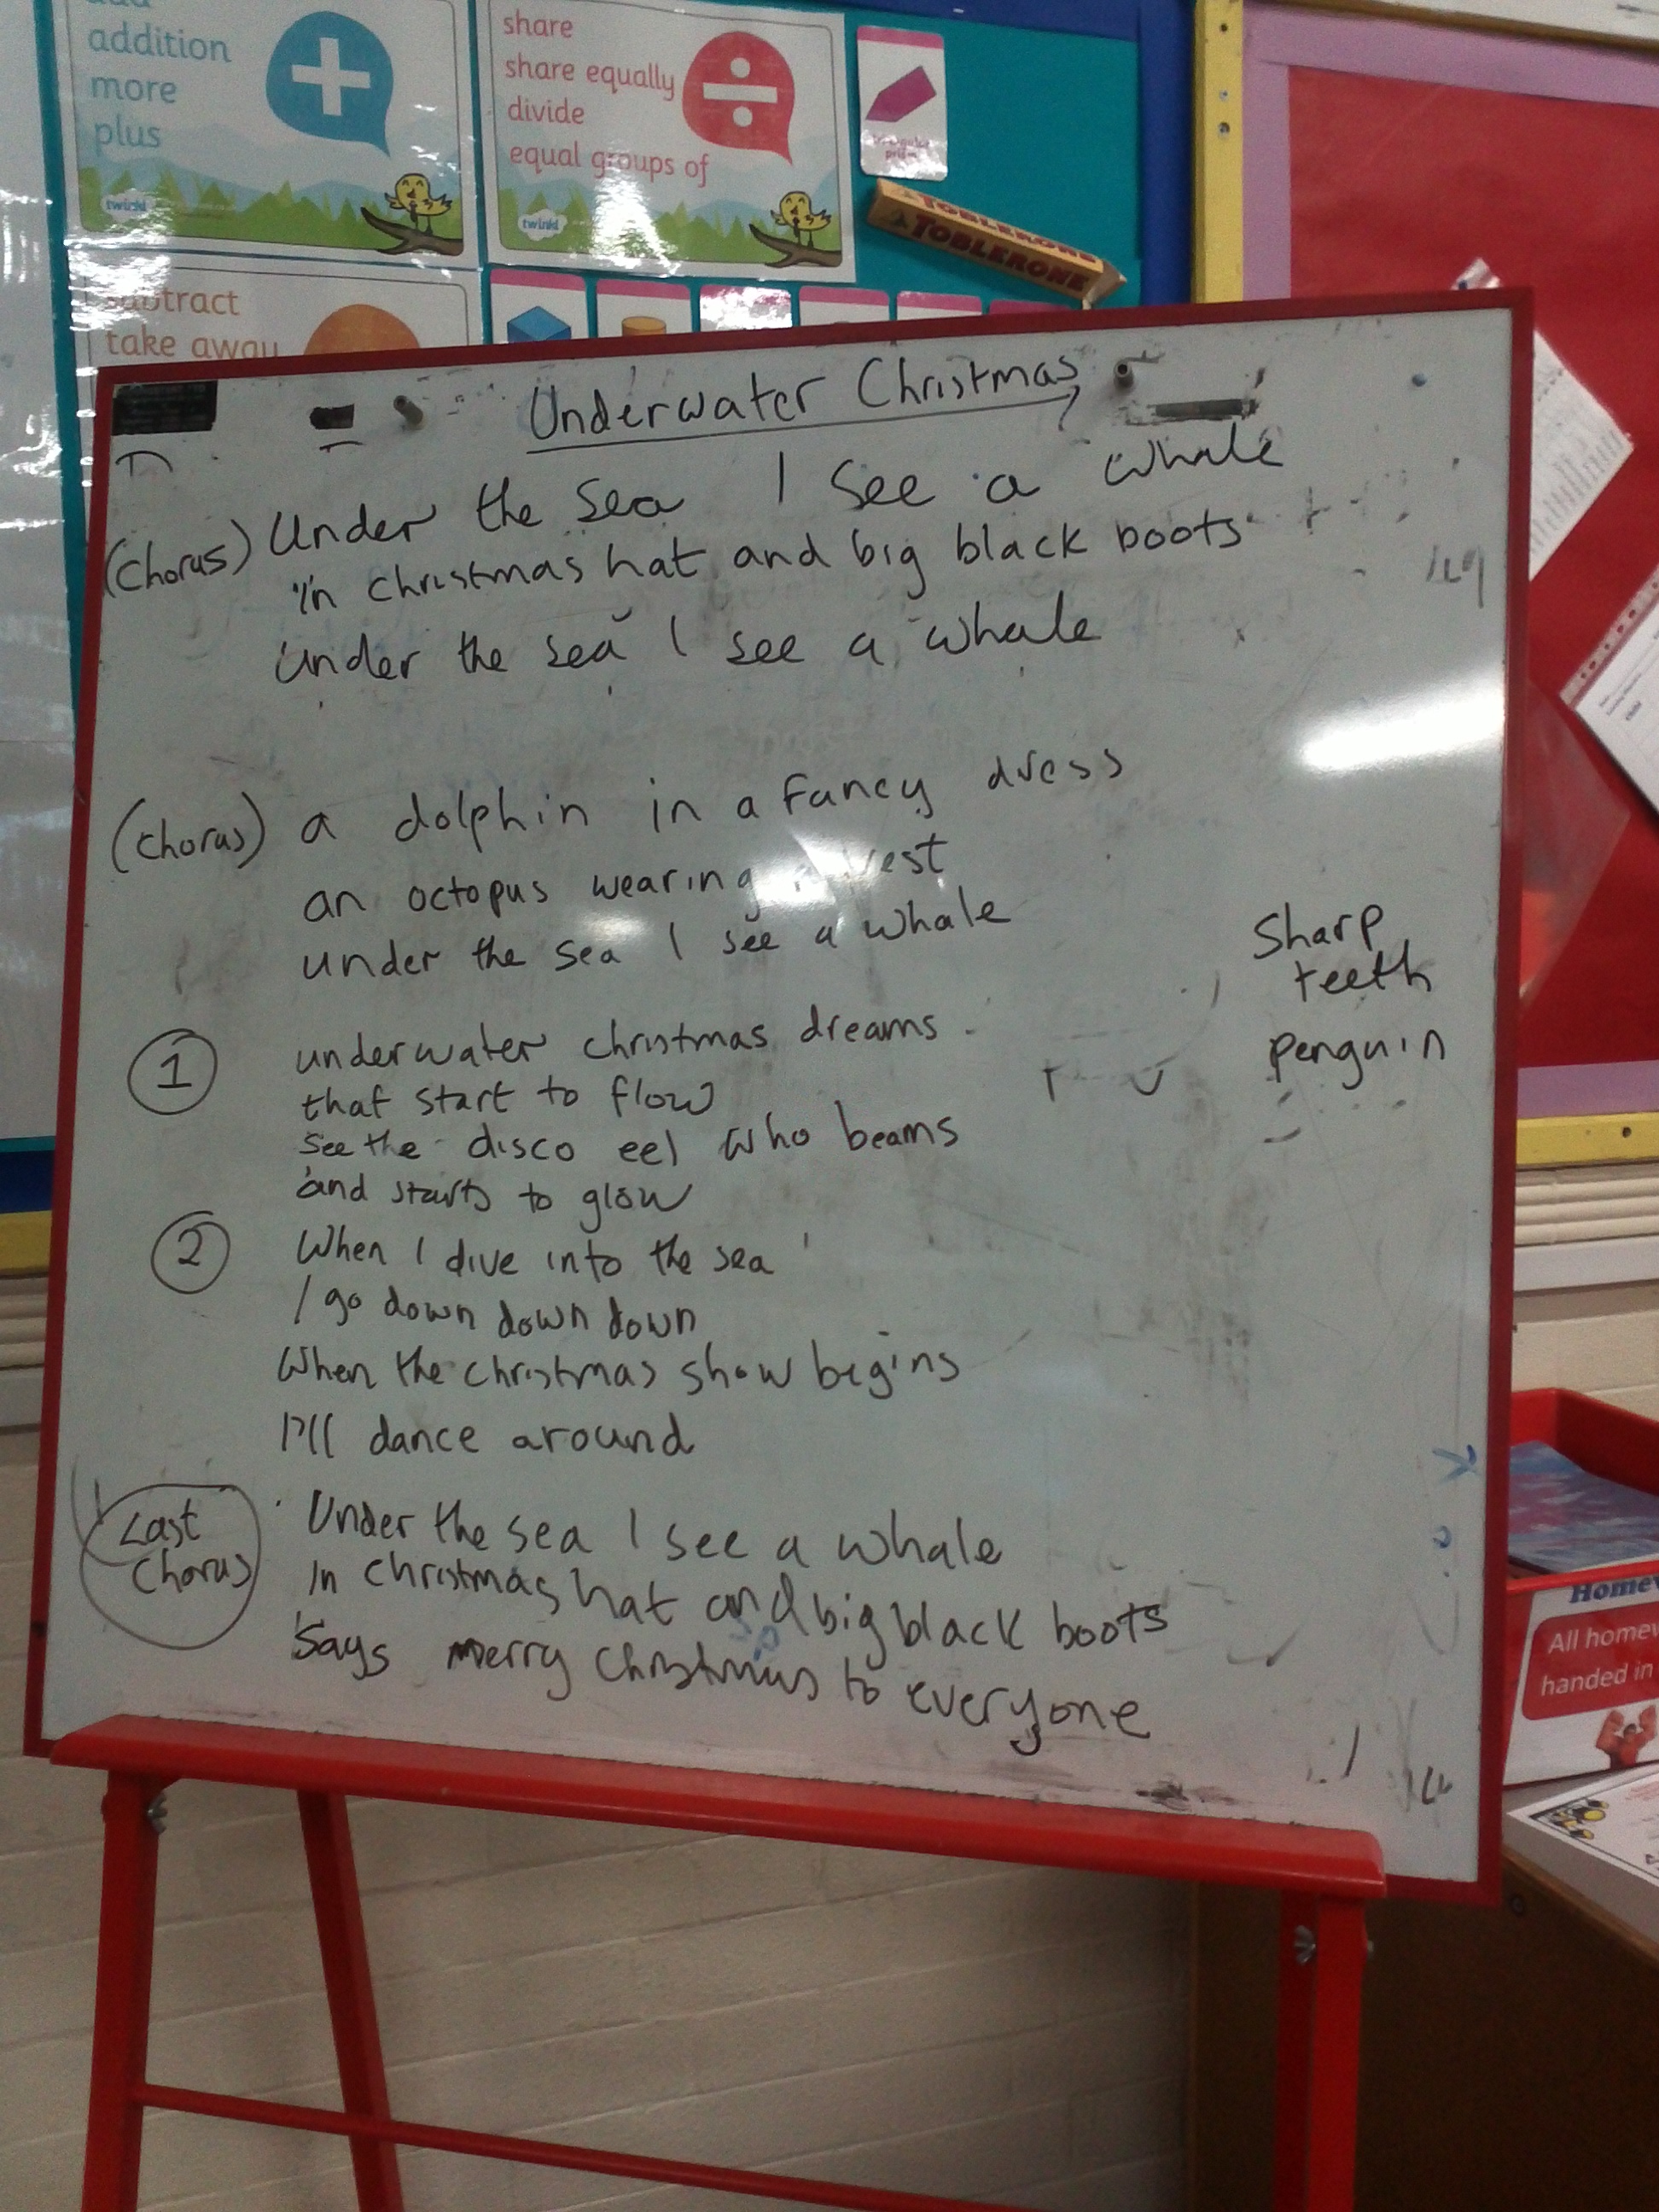 addition
more
plus
twinkl
share
share equally
divide
equal groups of
twinkl
TOBLERONE
TOBLERONE
subtract
take away
Underwater Christmas
(Chorus) Under the sea I see a whale
in christmas hat and big black boots
under the sea I see a whale
(Chorus) a dolphin in a fancy dress
an octopus wearing a vest
under the sea I see a whale
sharp
teeth
penguin
1 underwater christmas dreams
that start to flow
see the disco eel who beams
and starts to glow
2 When I dive into the sea
I go down down down
When the christmas show begins
I'll dance around
Last
Chorus
Under the sea I see a whale
in christmas hat and big black boots
Says merry christmas to everyone
All
handed in